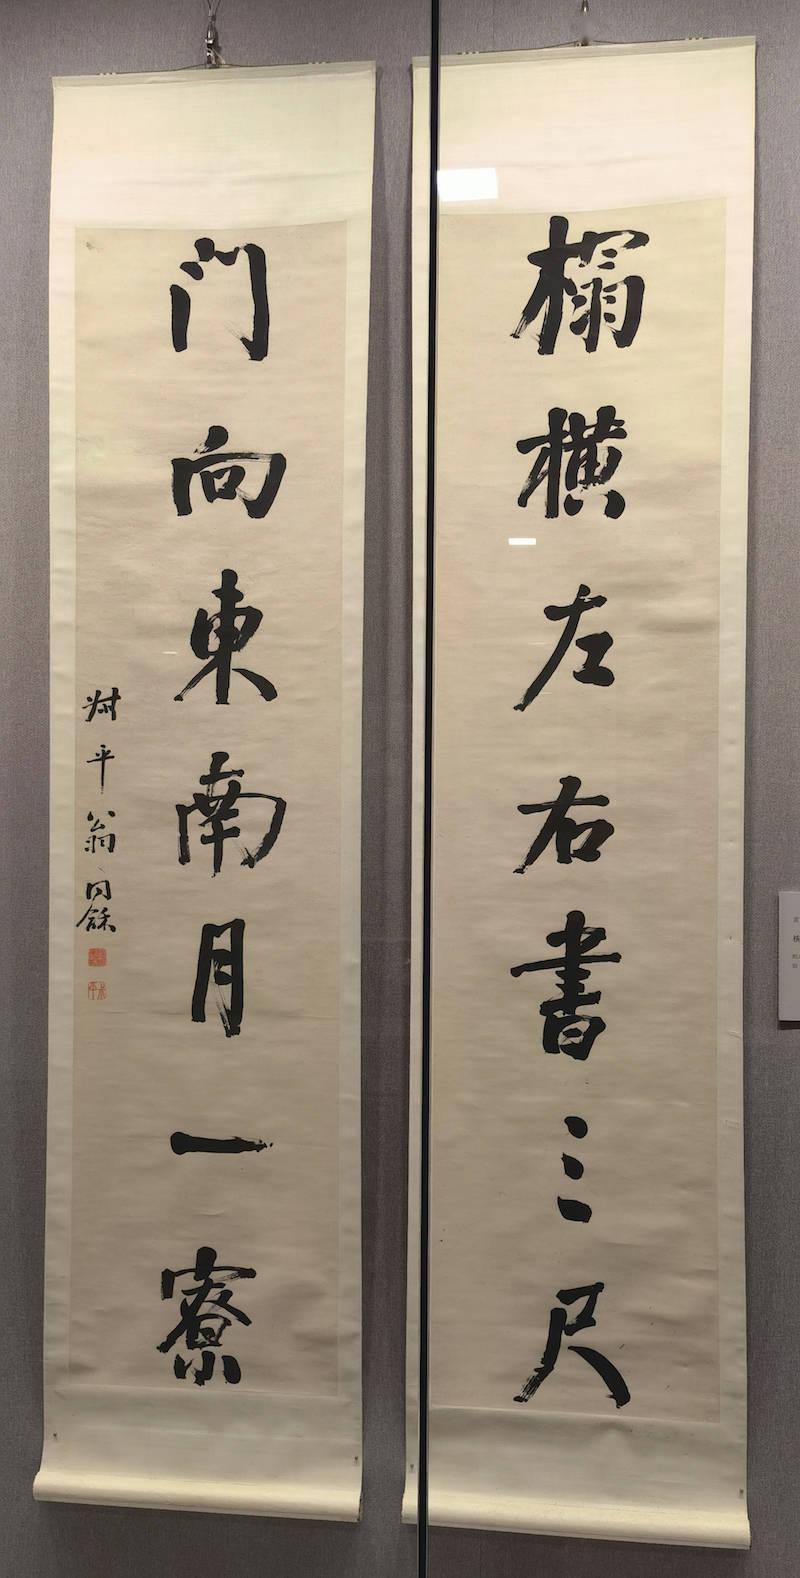 榻横左右書三尺
门向東南月一寮
叔平翁同龢